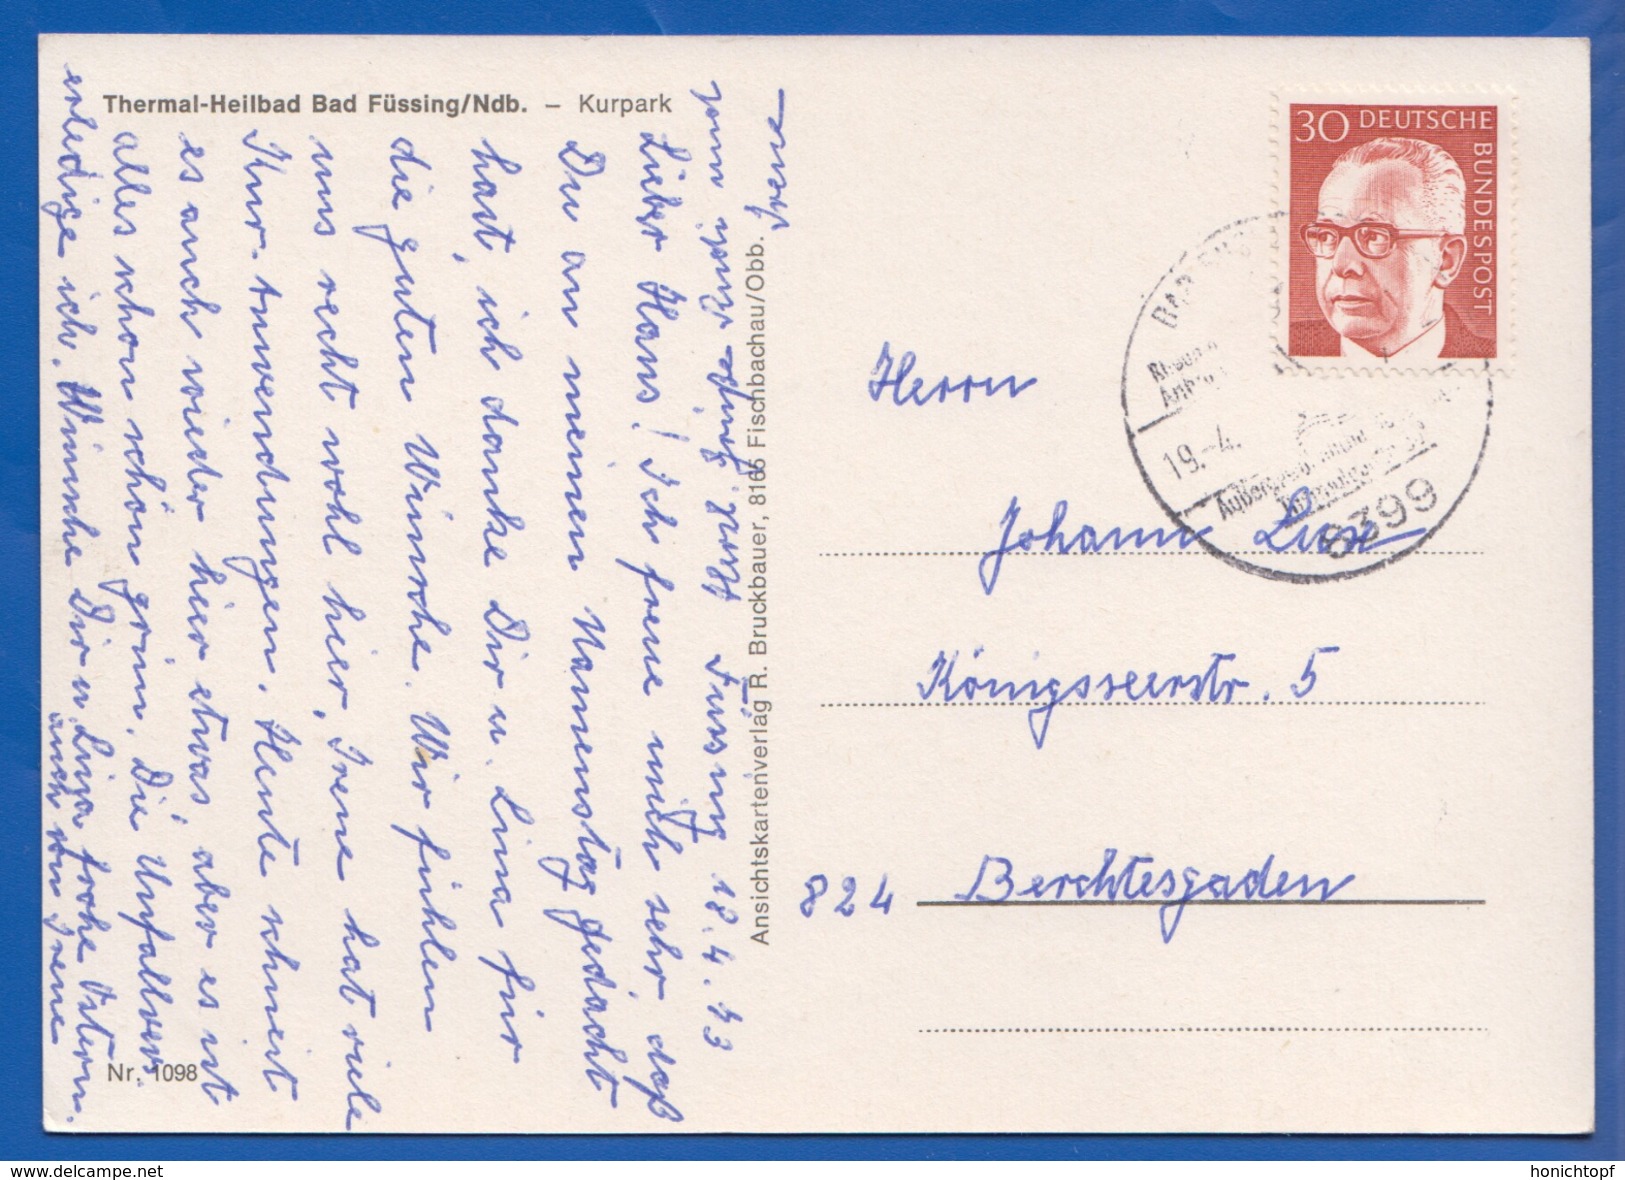 Thermal-Heilbad Bad Füssing/Ndb. – Kurpark
Bad Füssing 18.4.73
Lieber Hans! Ich freue mich sehr, daß
Du an meinen Namenstag gedacht
hast, ich danke Dir u. Lina für
die guten Wünsche. Wir fühlen
uns recht wohl hier, Irene hat viele
Kur-Anwendungen. Heute schneit
es auch wieder hier etwas, aber es ist
alles schon schön grün. Die Unfallvers.
erledige ich. Wünsche Dir u. Lina frohe Ostern.
auch von Irene
Ansichtskartenverlag R. Bruckbauer, 8165 Fischbachau/Obb.
Nr. 1098
30 DEUTSCHE
BUNDESPOST
19.-4.
8399
Herrn
Johann Lux
Königsseerstr. 5
824 Berchtesgaden
honichtopf